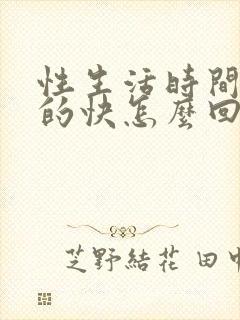 性生活時間
的快怎麼回
芝野結花 田中